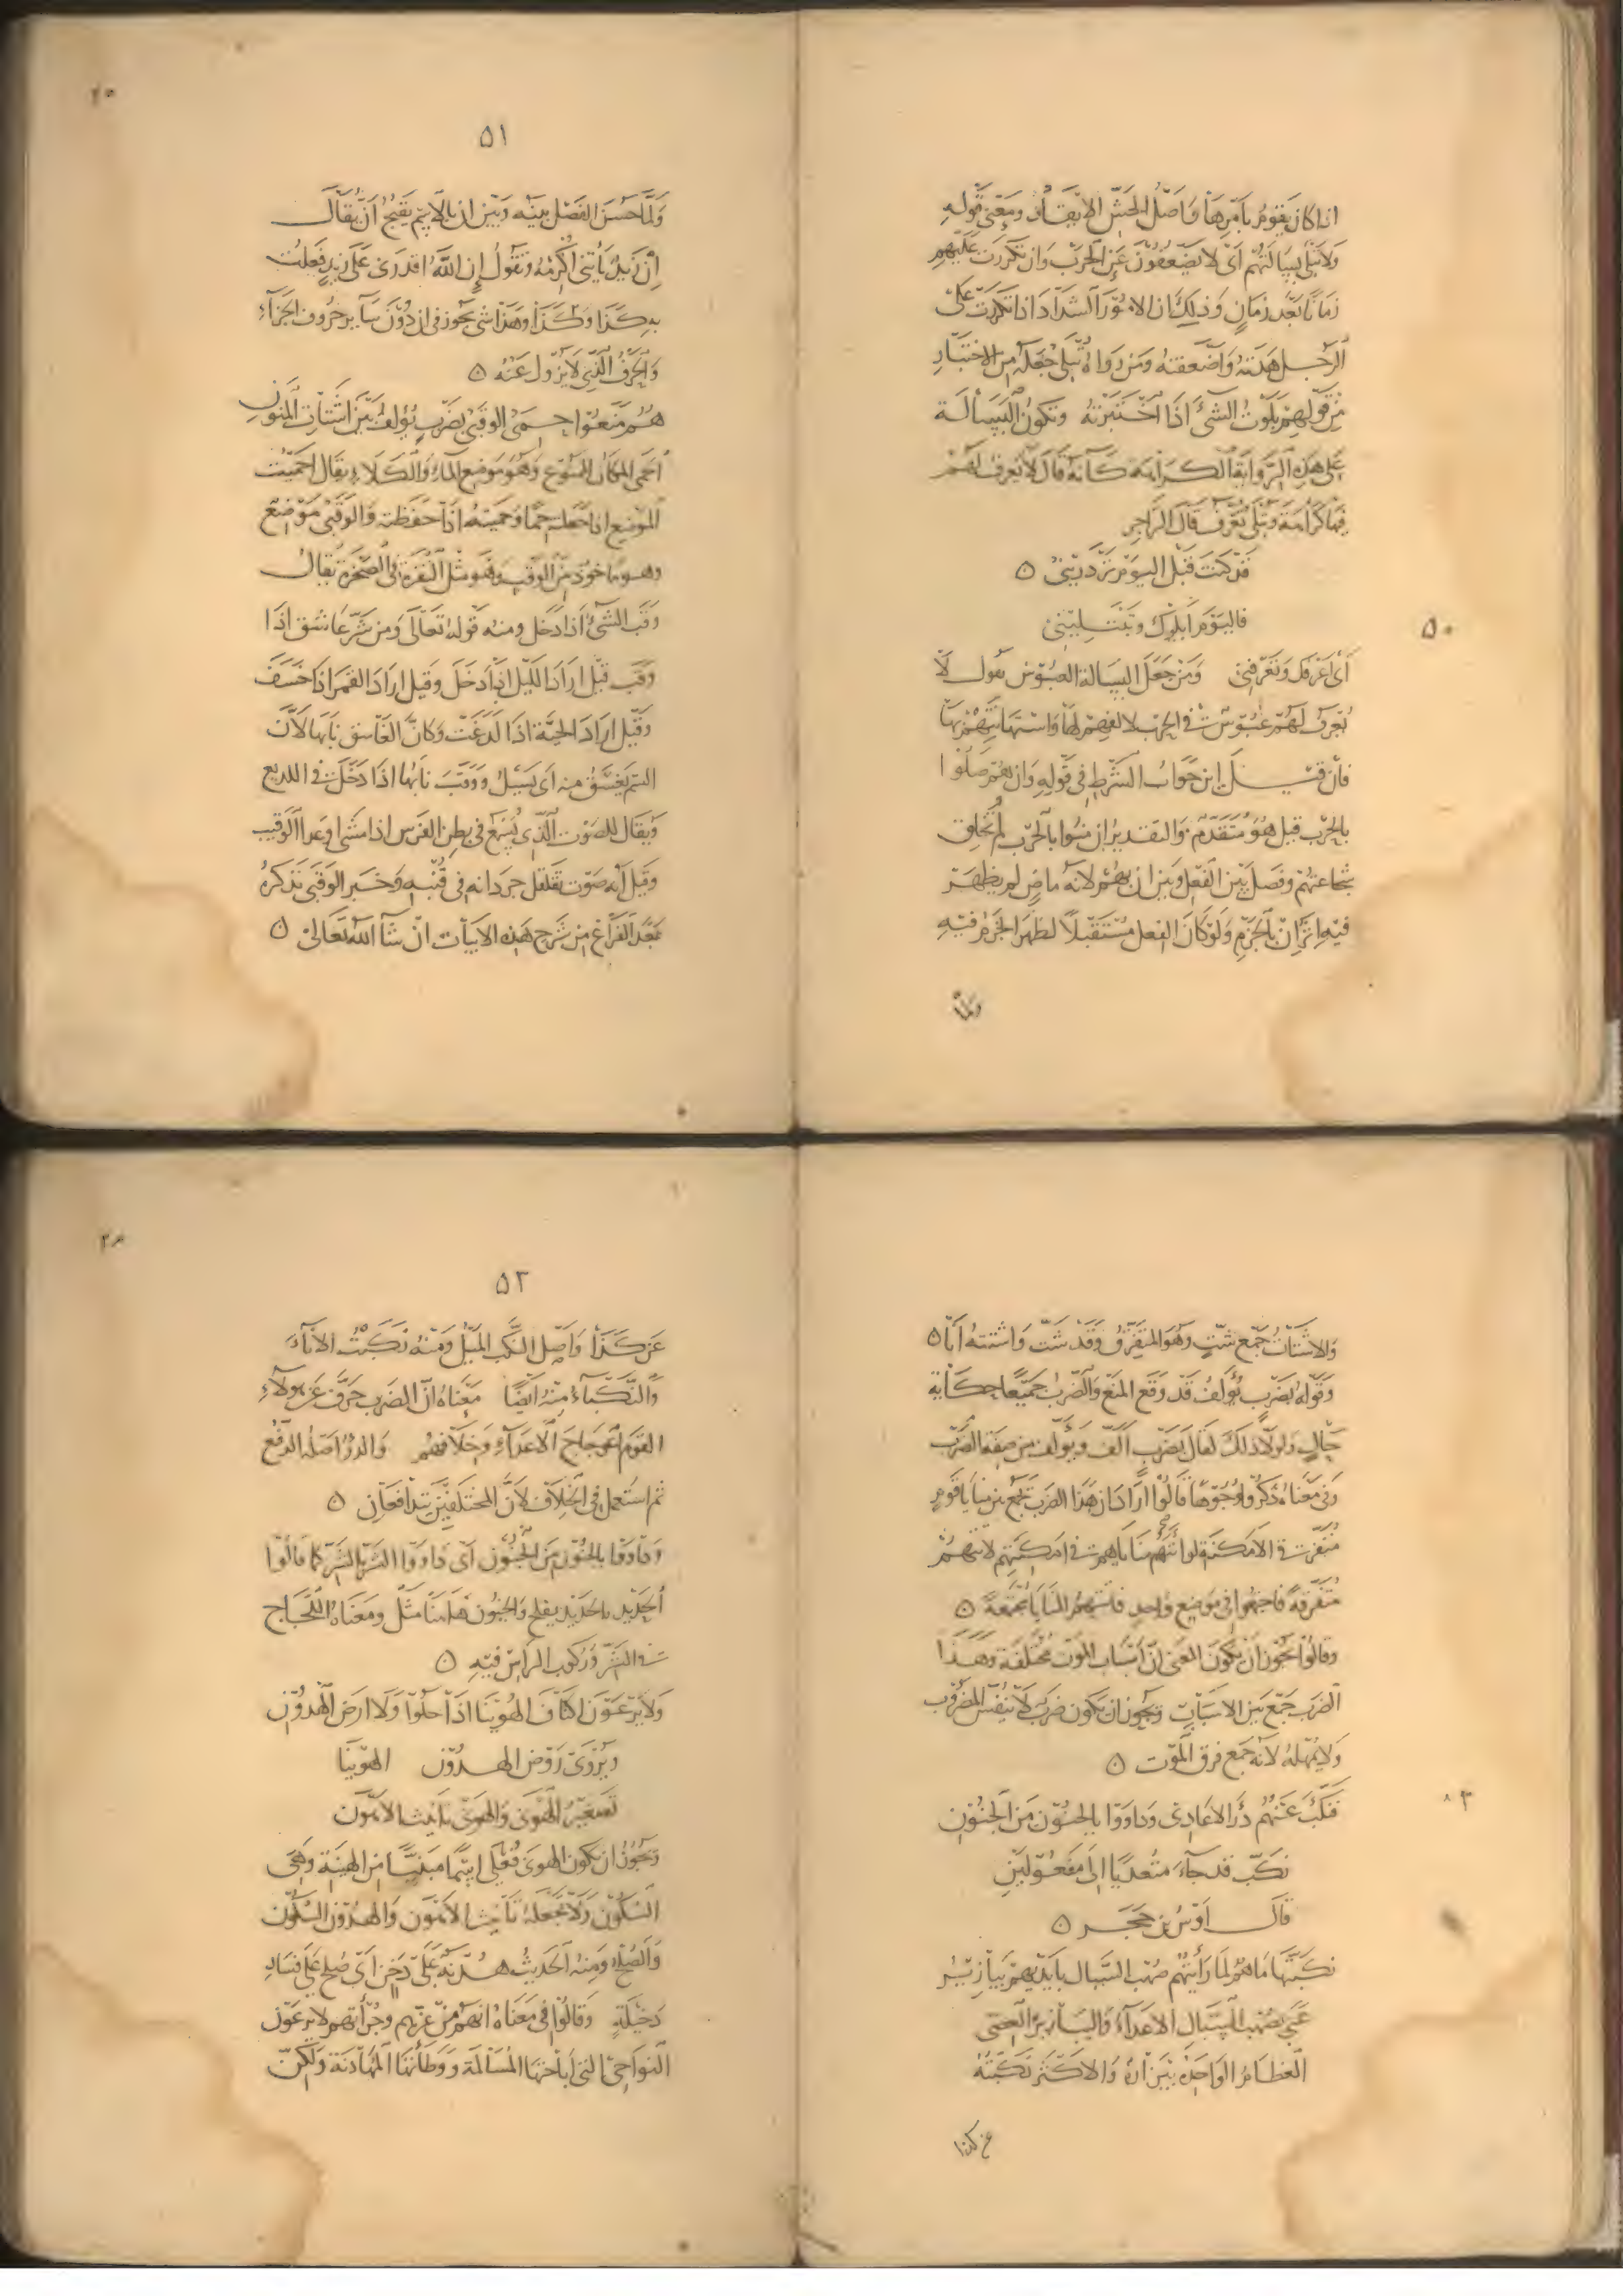 ٥٠
اذا كان يقوم بامرها واصل الحش الايقاد ومعنى قوله
ولا تبلى بسالتهم اى لا يضعفون عن الحرب وان تكررت عليهم
زمانا بعد زمان وذلك ان الامور الشداد اذا تكررت على
الرجل هدته واضعفته ومن رواه تبلى جعله من الاختبار
من قولهم بلوت الشئ اذا اختبرته وتكون البسالة
على هذه الرواية الكراهة كانه قال لا تعرف لهم
فيها كراهة وتبلى تعرف قال الراجز
قد كنت قبل اليوم تزدرينى ٥
فاليوم ابلوك وتبتلينى
اى اعرفك وتعرفنى ومن جعل البسالة العبوس يقول لا
تعرف لهم عبوس فى الحرب لالفهم لها واستهانتهم بها
فان قيل اين جواب الشرط فى قوله وان هم صلوا
بالحرب قيل هو متقدم والتقدير ان منوا بالحرب لم تخلق
شجاعتهم وفصل بين الفعل وبين ان بهم لانه ماض لم يظهر
فيه اثر ان بالجزم ولو كان الفعل مستقبلا لظهر الجزم فيه
ولما
٢٥
٥١
ولما حسن الفصل بينه وبين ان بالاسم يقبح ان يقال
ان زيد ياتنى اكرمه وتقول ان الله اقدرنى على زيد فعلت
به كذا وكذا وهذا شى يجوز فى ان دون سآير حروف الجزآء
والحرف الذى لا يزول عنه ٥
هم منعوا حمى الوقبى بضرب يؤلف بين اشتات المنون
الحمى المكان الممنوع وهو موضع المآء والكلاء يقال احميت
الموضع اذا جعلته حما وحميته اذا حفظته والوقبى موضع
وهو ماخوذ من الوقب وهو مثل النقرة فى الصخرة يقال
وقب الشئ اذا دخل ومنه قوله تعالى ومن شر غاسق اذا
وقب قيل اراد الليل اذا دخل وقيل اراد القمر اذا خسف
وقيل اراد الحية اذا لدغت وكان الغاسق نابها لان
السم يغسق منه اى يسيل ووقب نابها اذا دخل فى اللديغ
ويقال للصوت الذى يسمع فى بطن الفرس اذا مشى او عدا الوقيب
وقيل انه صوت تقلقل جردانه فى قنبه وخبر الوقبى نذكره
بعد الفراغ من شرح هذه الابيات ان شآ الله تعالى ٥
والاشتات جمع شت وهو المتفرق وقد شت واشتته انا ٥
وقوله بضرب يؤلف قد وقع المنع والضرب جميعا حكاية
حال ولولا ذلك لقال بضرب الف ويؤلف من صفة الضرب
وفى معناه ذكروا وجوها قالوا اراد ان هذا الضرب جمع بين منايا قوم
متفرقى الامكنة لو اتتهم مناياهم فى امكنتهم لاتتهم
متفرقة فاجتمعوا فى موضع واحد فاتتهم المنايا مجتمعة ٥
وقالوا يجوز ان يكون المعنى ان اسباب الموت مختلفة وهذا
الضرب جمع بين الاسباب ويجوز ان يكون ضرب لا ينفس المضروب
ولا يمهله لانه جمع فرق الموت ٥
فنكب عنهم درء الاعادى وداووا بالجنون من الجنون
نكب قد جآء متعديا الى مفعولين
قال اوس بن حجر ٥
نكبتها ماءهم لما رايتهم صهب السبال بايديهم بيازير
عنى بصهب السبال الاعدآء والبيازير العصى
العظام الواحدة بيزارة والاكثر نكبته
عن كذا
٢٦
٥٢
عن كذا واصل النكب الميل ومنه نكبت الانآء
والنكبآء منه ايضا معناه ان الضرب حرف عن هولآء
القوم اعوجاج الاعدآء وخلافهم والدرؤ اصله الدفع
ثم استعمل فى الخلاف لان المختلفين يتدافعان ٥
وداووا بالجنون من الجنون اى داووا الشر بالشر كما قالوا
الحديد بالحديد يفلح والجنون هاهنا مثل ومعناه اللجاج
فى الشر وركوب الراس فيه ٥
ولا يرعون اكناف الهوينا اذا حلوا ولا ارض الهدون
ويروى روض الهدون الهوينا
تصغير الهونى والهونى تانيث الاهون
ويجوز ان يكون الهونى فعلى اسما مبنيا من الهينة وهى
السكون ولا تجعله تانيث الاهون والهدون السكون
والصلح ومنه الحديث هدنة على دخن اى صلح على فساد
دخيلة وقالوا فى معناه انهم من عزهم وجرأتهم لا يرعون
النواحى التى اباحتها المسالمة ووطأتها المهادنة ولكن